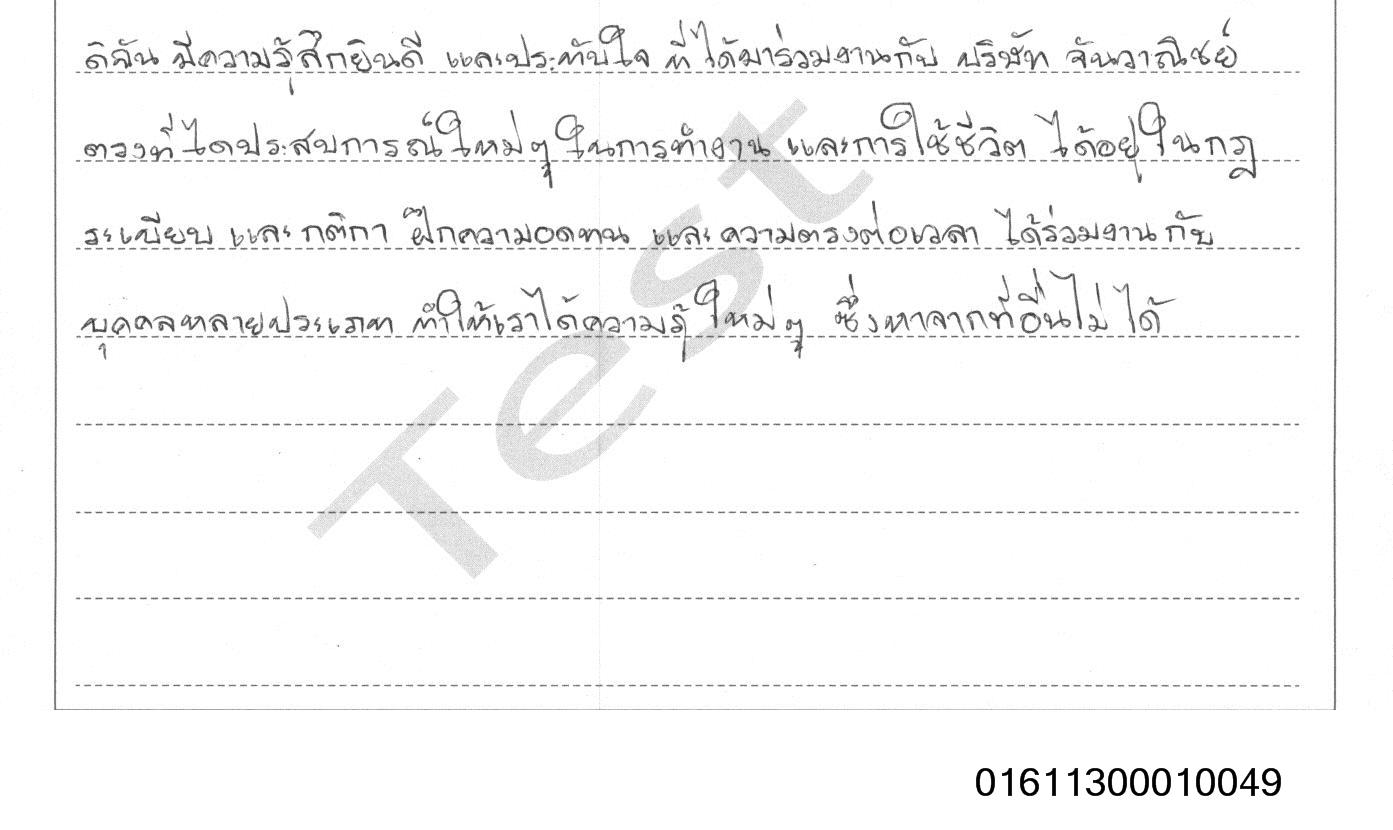 ดิฉัน มีความรู้สึกยินดี และประทับใจ ที่ได้มาร่วมงานกับ บริษัท จันวาณิชย์
ตรงที่ได้ประสบการณ์ใหม่ๆ ในการทำงาน และการใช้ชีวิต ได้อยู่ในกฎ
ระเบียบ และ กติกา ฝึกความอดทน และ ความตรงต่อเวลา ได้ร่วมงาน กับ
บุคคลหลายประเภท ทำให้เราได้ความรู้ ใหม่ๆ ซึ่งหาจากที่อื่นไม่ได้
Test
01611300010049